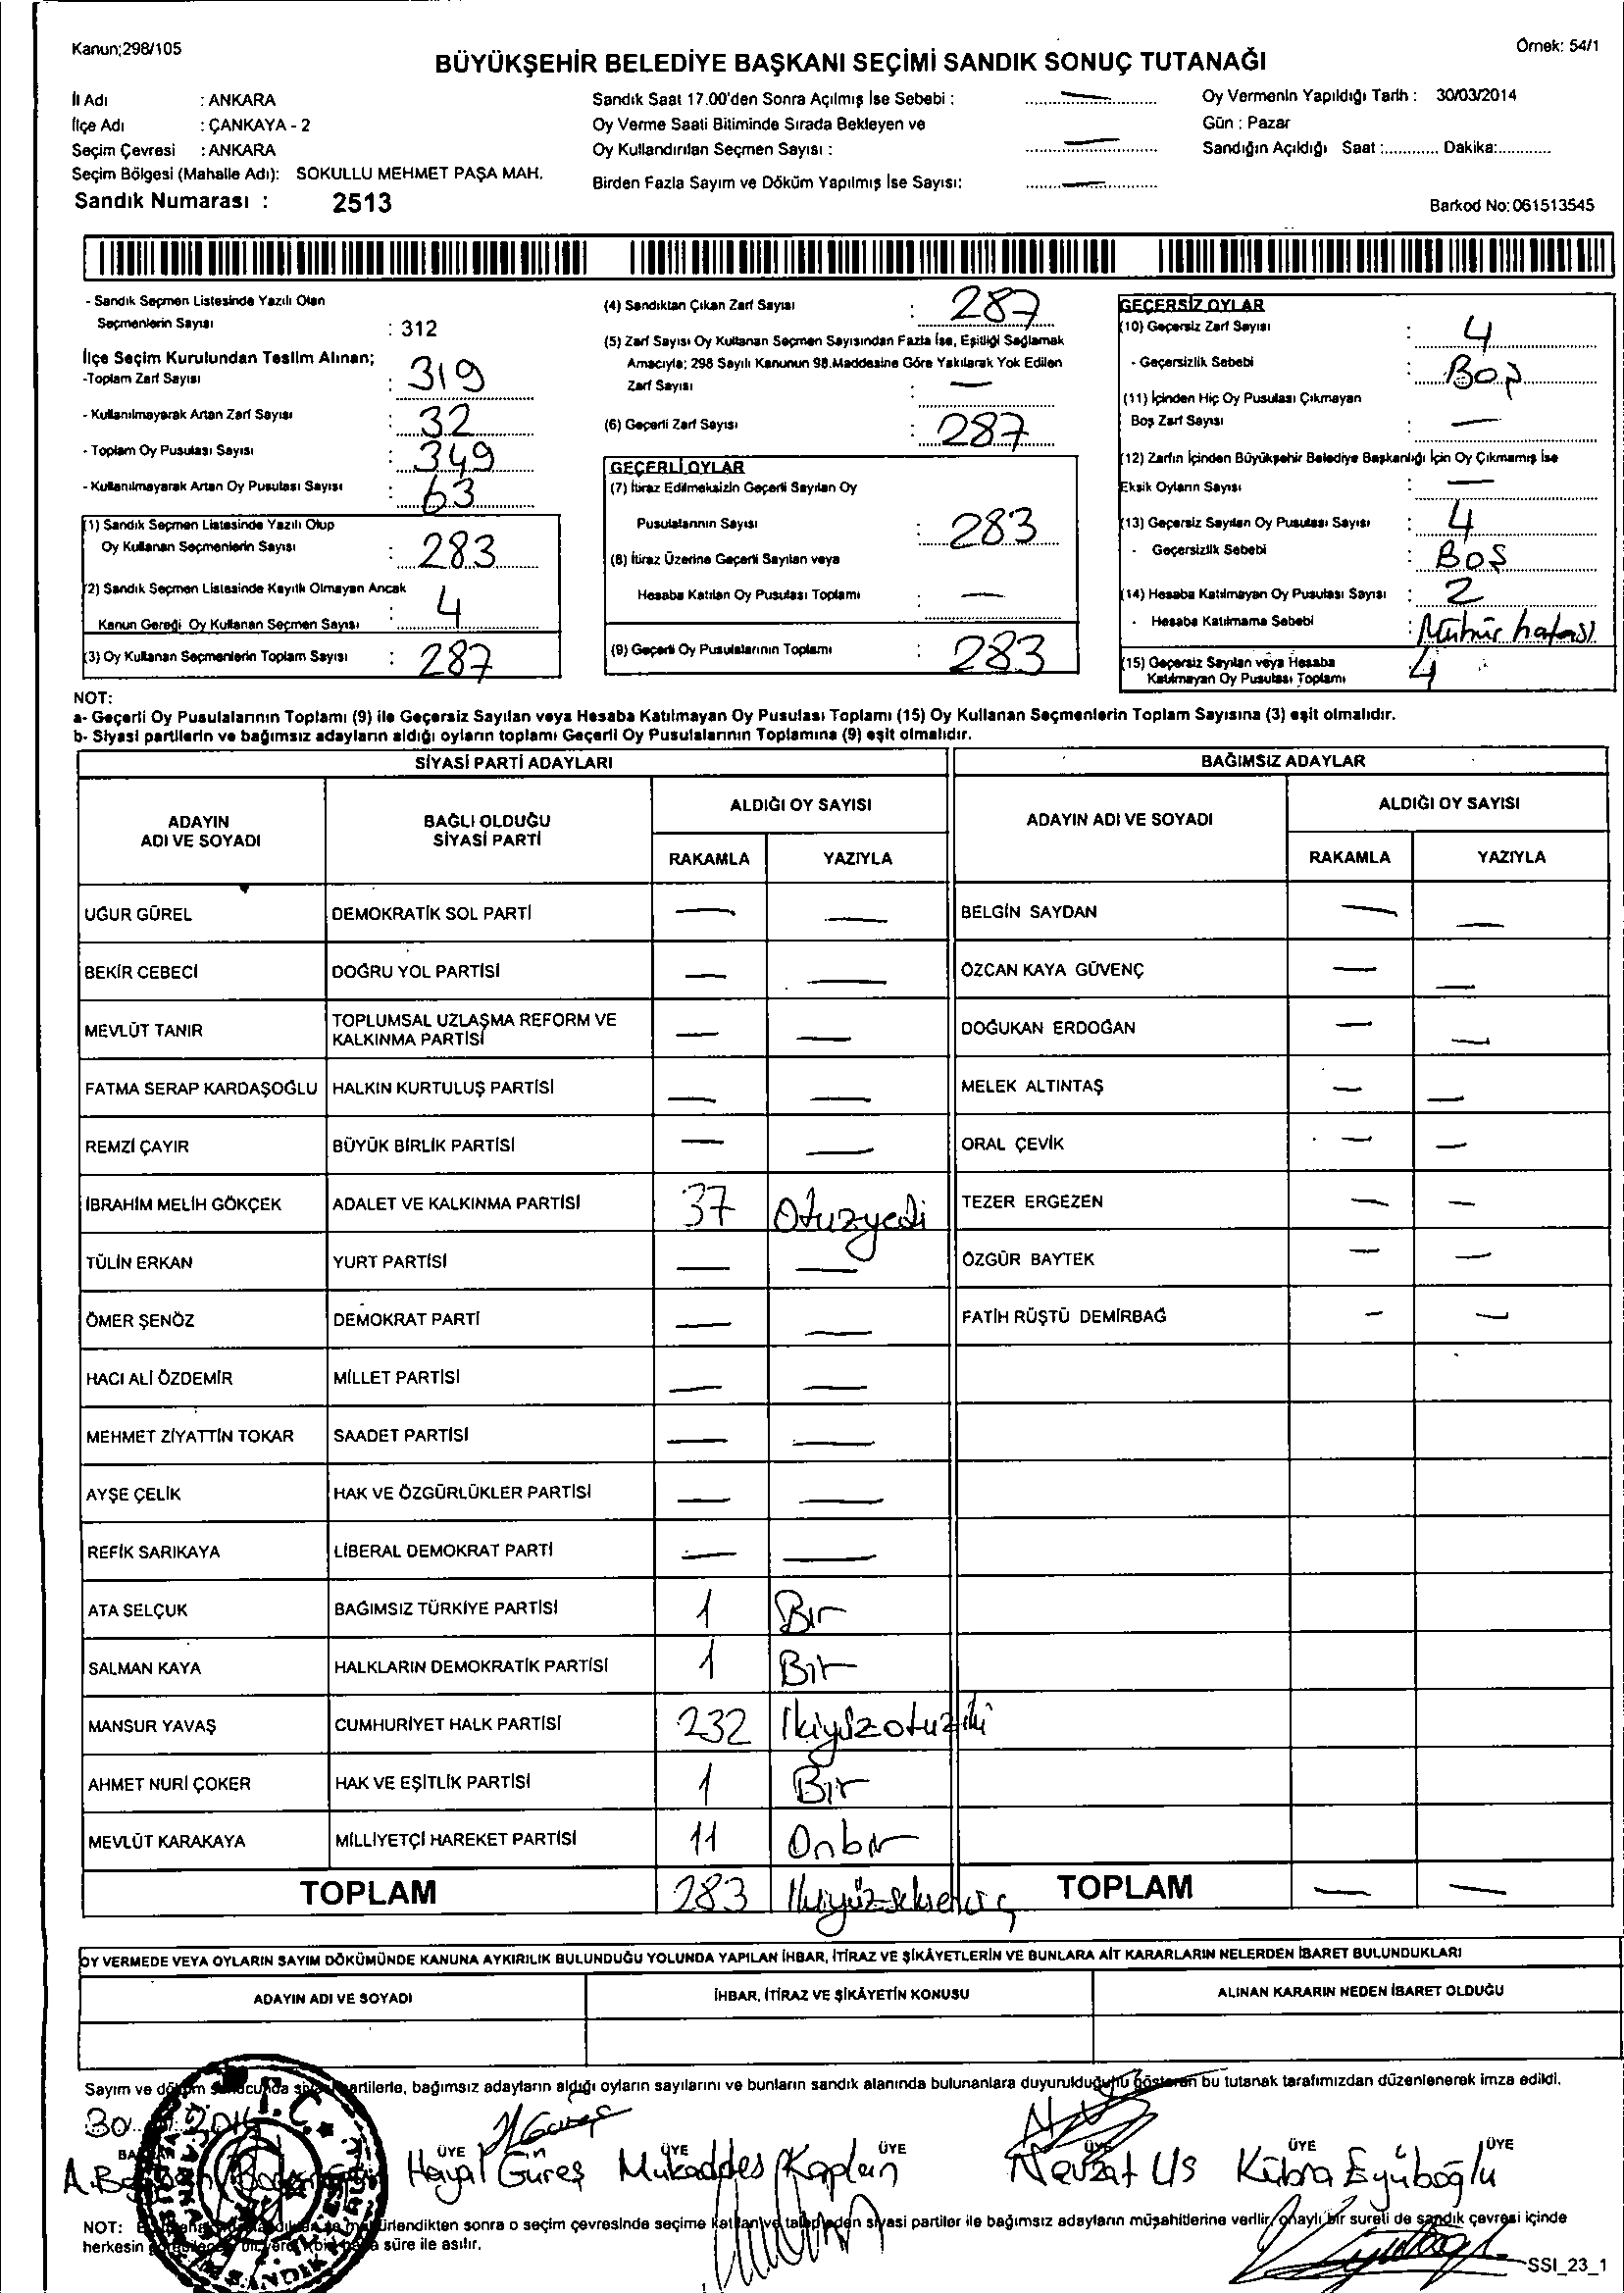 Kanun;298/105
Örnek: 54/1
BÜYÜKŞEHİR BELEDİYE BAŞKANI SEÇİMİ SANDIK SONUÇ TUTANAĞI
İl Adı : ANKARA
İlçe Adı : ÇANKAYA - 2
Seçim Çevresi : ANKARA
Seçim Bölgesi (Mahalle Adı): SOKULLU MEHMET PAŞA MAH.
Sandık Numarası : 2513
Sandık Saat 17.00'den Sonra Açılmış İse Sebebi : —
Oy Verme Saati Bitiminde Sırada Bekleyen ve
Oy Kullandırılan Seçmen Sayısı : —
Birden Fazla Sayım ve Döküm Yapılmış İse Sayısı: —
Oy Vermenin Yapıldığı Tarih : 30/03/2014
Gün : Pazar
Sandığın Açıldığı Saat :............ Dakika:............
Barkod No: 061513545
- Sandık Seçmen Listesinde Yazılı Olan
Seçmenlerin Sayısı : 312
İlçe Seçim Kurulundan Teslim Alınan;
-Toplam Zarf Sayısı : 319
- Kullanılmayarak Artan Zarf Sayısı : 32
- Toplam Oy Pusulası Sayısı : 349
- Kullanılmayarak Artan Oy Pusulası Sayısı : 63
(1) Sandık Seçmen Listesinde Yazılı Olup
Oy Kullanan Seçmenlerin Sayısı : 283
(2) Sandık Seçmen Listesinde Kayıtlı Olmayan Ancak
Kanun Gereği Oy Kullanan Seçmen Sayısı : 4
(3) Oy Kullanan Seçmenlerin Toplam Sayısı : 287
(4) Sandıktan Çıkan Zarf Sayısı : 287
(5) Zarf Sayısı Oy Kullanan Seçmen Sayısından Fazla İse, Eşitliği Sağlamak
Amacıyla; 298 Sayılı Kanunun 98.Maddesine Göre Yakılarak Yok Edilen
Zarf Sayısı : —
(6) Geçerli Zarf Sayısı : 287
GEÇERLİ OYLAR
(7) İtiraz Edilmeksizin Geçerli Sayılan Oy
Pusulalarının Sayısı : 283
(8) İtiraz Üzerine Geçerli Sayılan veya
Hesaba Katılan Oy Pusulası Toplamı : —
(9) Geçerli Oy Pusulalarının Toplamı : 283
GEÇERSİZ OYLAR
(10) Geçersiz Zarf Sayısı : 4
- Geçersizlik Sebebi : Boş
(11) İçinden Hiç Oy Pusulası Çıkmayan
Boş Zarf Sayısı : —
(12) Zarfın İçinden Büyükşehir Belediye Başkanlığı İçin Oy Çıkmamış İse
Eksik Oyların Sayısı : —
(13) Geçersiz Sayılan Oy Pusulası Sayısı : 4
- Geçersizlik Sebebi : Boş
(14) Hesaba Katılmayan Oy Pusulası Sayısı : 2
- Hesaba Katılmama Sebebi : Mühür hatası
(15) Geçersiz Sayılan veya Hesaba
Katılmayan Oy Pusulası Toplamı 4
NOT:
a- Geçerli Oy Pusulalarının Toplamı (9) ile Geçersiz Sayılan veya Hesaba Katılmayan Oy Pusulası Toplamı (15) Oy Kullanan Seçmenlerin Toplam Sayısına (3) eşit olmalıdır.
b- Siyasi partilerin ve bağımsız adayların aldığı oyların toplamı Geçerli Oy Pusulalarının Toplamına (9) eşit olmalıdır.
SİYASİ PARTİ ADAYLARI
ADAYIN ADI VE SOYADI BAĞLI OLDUĞU SİYASİ PARTİ ALDIĞI OY SAYISI
RAKAMLA YAZIYLA
UĞUR GÜREL DEMOKRATİK SOL PARTİ — —
BEKİR CEBECİ DOĞRU YOL PARTİSİ — —
MEVLÜT TANIR TOPLUMSAL UZLAŞMA REFORM VE KALKINMA PARTİSİ — —
FATMA SERAP KARDAŞOĞLU HALKIN KURTULUŞ PARTİSİ — —
REMZİ ÇAYIR BÜYÜK BİRLİK PARTİSİ — —
İBRAHİM MELİH GÖKÇEK ADALET VE KALKINMA PARTİSİ 37 Otuzyedi
TÜLİN ERKAN YURT PARTİSİ — —
ÖMER ŞENÖZ DEMOKRAT PARTİ — —
HACI ALİ ÖZDEMİR MİLLET PARTİSİ — —
MEHMET ZİYATTİN TOKAR SAADET PARTİSİ — —
AYŞE ÇELİK HAK VE ÖZGÜRLÜKLER PARTİSİ — —
REFİK SARIKAYA LİBERAL DEMOKRAT PARTİ — —
ATA SELÇUK BAĞIMSIZ TÜRKİYE PARTİSİ 1 Bir
SALMAN KAYA HALKLARIN DEMOKRATİK PARTİSİ 1 Bir
MANSUR YAVAŞ CUMHURİYET HALK PARTİSİ 232 Ikiyüzotuziki
AHMET NURİ ÇOKER HAK VE EŞİTLİK PARTİSİ 1 Bir
MEVLÜT KARAKAYA MİLLİYETÇİ HAREKET PARTİSİ 11 Onbir
TOPLAM 283 Ikiyüzseksenüç
BAĞIMSIZ ADAYLAR
ADAYIN ADI VE SOYADI ALDIĞI OY SAYISI
RAKAMLA YAZIYLA
BELGİN SAYDAN — —
ÖZCAN KAYA GÜVENÇ — —
DOĞUKAN ERDOĞAN — —
MELEK ALTINTAŞ — —
ORAL ÇEVİK — —
TEZER ERGEZEN — —
ÖZGÜR BAYTEK — —
FATİH RÜŞTÜ DEMİRBAĞ — —
TOPLAM — —
OY VERMEDE VEYA OYLARIN SAYIM DÖKÜMÜNDE KANUNA AYKIRILIK BULUNDUĞU YOLUNDA YAPILAN İHBAR, İTİRAZ VE ŞİKÂYETLERİN VE BUNLARA AİT KARARLARIN NELERDEN İBARET BULUNDUKLARI
ADAYIN ADI VE SOYADI İHBAR, İTİRAZ VE ŞİKÂYETİN KONUSU ALINAN KARARIN NEDEN İBARET OLDUĞU
Sayım ve döküm sonucunda siyasi partilerle, bağımsız adayların aldığı oyların sayılarını ve bunların sandık alanında bulunanlara duyurulduğunu gösteren bu tutanak tarafımızdan düzenlenerek imza edildi.
30 2014
ÜYE ÜYE ÜYE ÜYE ÜYE ÜYE
Hayal Güreş Mukaddes Kaplan Nevzat Us Kübra Eyüboğlu
NOT: sonra o seçim çevresinde seçime katılan ve talep eden siyasi partiler ile bağımsız adayların müşahitlerine verilir, onaylı bir sureti de sandık çevresi içinde
herkesin süre ile asılır.
SSI_23_1